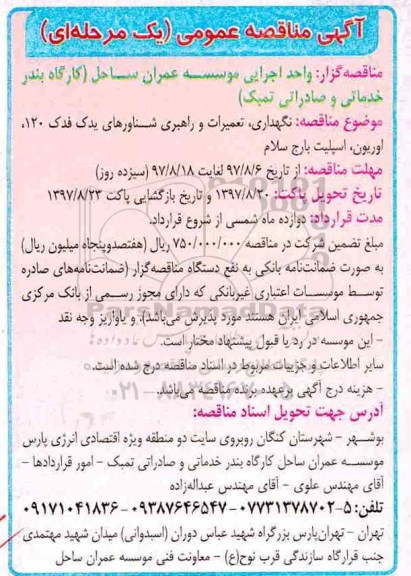 آگهی مناقصه عمومی (یک مرحله‌ای)
مناقصه‌گزار: واحد اجرایی موسسه عمران ساحل (کارگاه بندر
خدماتی و صادراتی تمبک)
موضوع مناقصه: نگهداری، تعمیرات و راهبری شناورهای یدک فدک ۱۲۰،
اوریون، اسپلیت بارج سلام
مهلت مناقصه: از تاریخ ۹۷/۸/۶ لغایت ۹۷/۸/۱۸ (سیزده روز)
تاریخ تحویل پاکت: ۱۳۹۷/۸/۲۰ و تاریخ بازگشایی پاکت ۱۳۹۷/۸/۲۳
مدت قرارداد: دوازده ماه شمسی از شروع قرارداد.
مبلغ تضمین شرکت در مناقصه ۷۵۰/۰۰۰/۰۰۰ ریال (هفتصدوپنجاه میلیون ریال)
به صورت ضمانت‌نامه بانکی به نفع دستگاه مناقصه‌گزار (ضمانت‌نامه‌های صادره
توسط موسسات اعتباری غیربانکی که دارای مجوز رسمی از بانک مرکزی
جمهوری اسلامی ایران هستند مورد پذیرش می‌باشد). و یاواریز وجه نقد
- این موسسه در رد یا قبول پیشنهاد مختار است.
سایر اطلاعات و جزییات مربوط در اسناد مناقصه درج شده است.
- هزینه درج آگهی برعهده برنده مناقصه می‌باشد.
آدرس جهت تحویل اسناد مناقصه:
بوشهر - شهرستان کنگان روبروی سایت دو منطقه ویژه اقتصادی انرژی پارس
موسسه عمران ساحل کارگاه بندر خدماتی و صادراتی تمبک - امور قراردادها -
آقای مهندس علوی - آقای مهندس عبداله‌زاده
تلفن: ۵-۰۷۷۳۱۳۷۸۷۰۲ - ۰۹۳۸۷۶۴۶۵۴۷ - ۰۹۱۷۱۰۴۱۸۳۶
تهران - تهران‌پارس بزرگراه شهید عباس دوران (اسبدوانی) میدان شهید مهتمدی
جنب قرارگاه سازندگی قرب نوح(ع) - معاونت فنی موسسه عمران ساحل